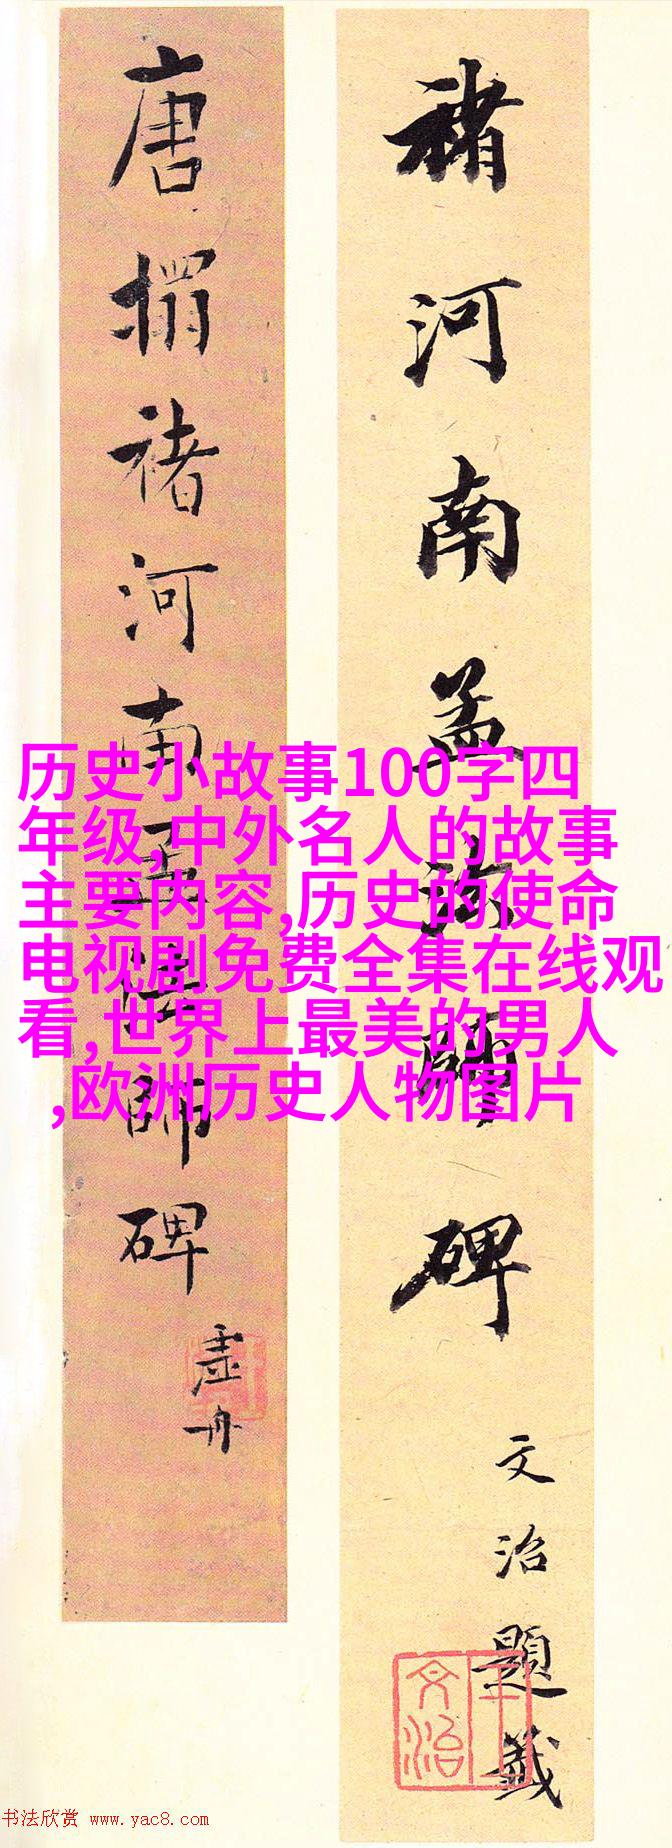 褚河南孟法師碑
文治題籤
王
文治
唐搨褚河南孟法師碑
虛舟
历史小故事100字四
年级,中外名人的故事
主要内容,历史的使命
电视剧免费全集在线观
看,世界上最美的男人
,欧洲历史人物图片
书法欣赏 www.yac8.com